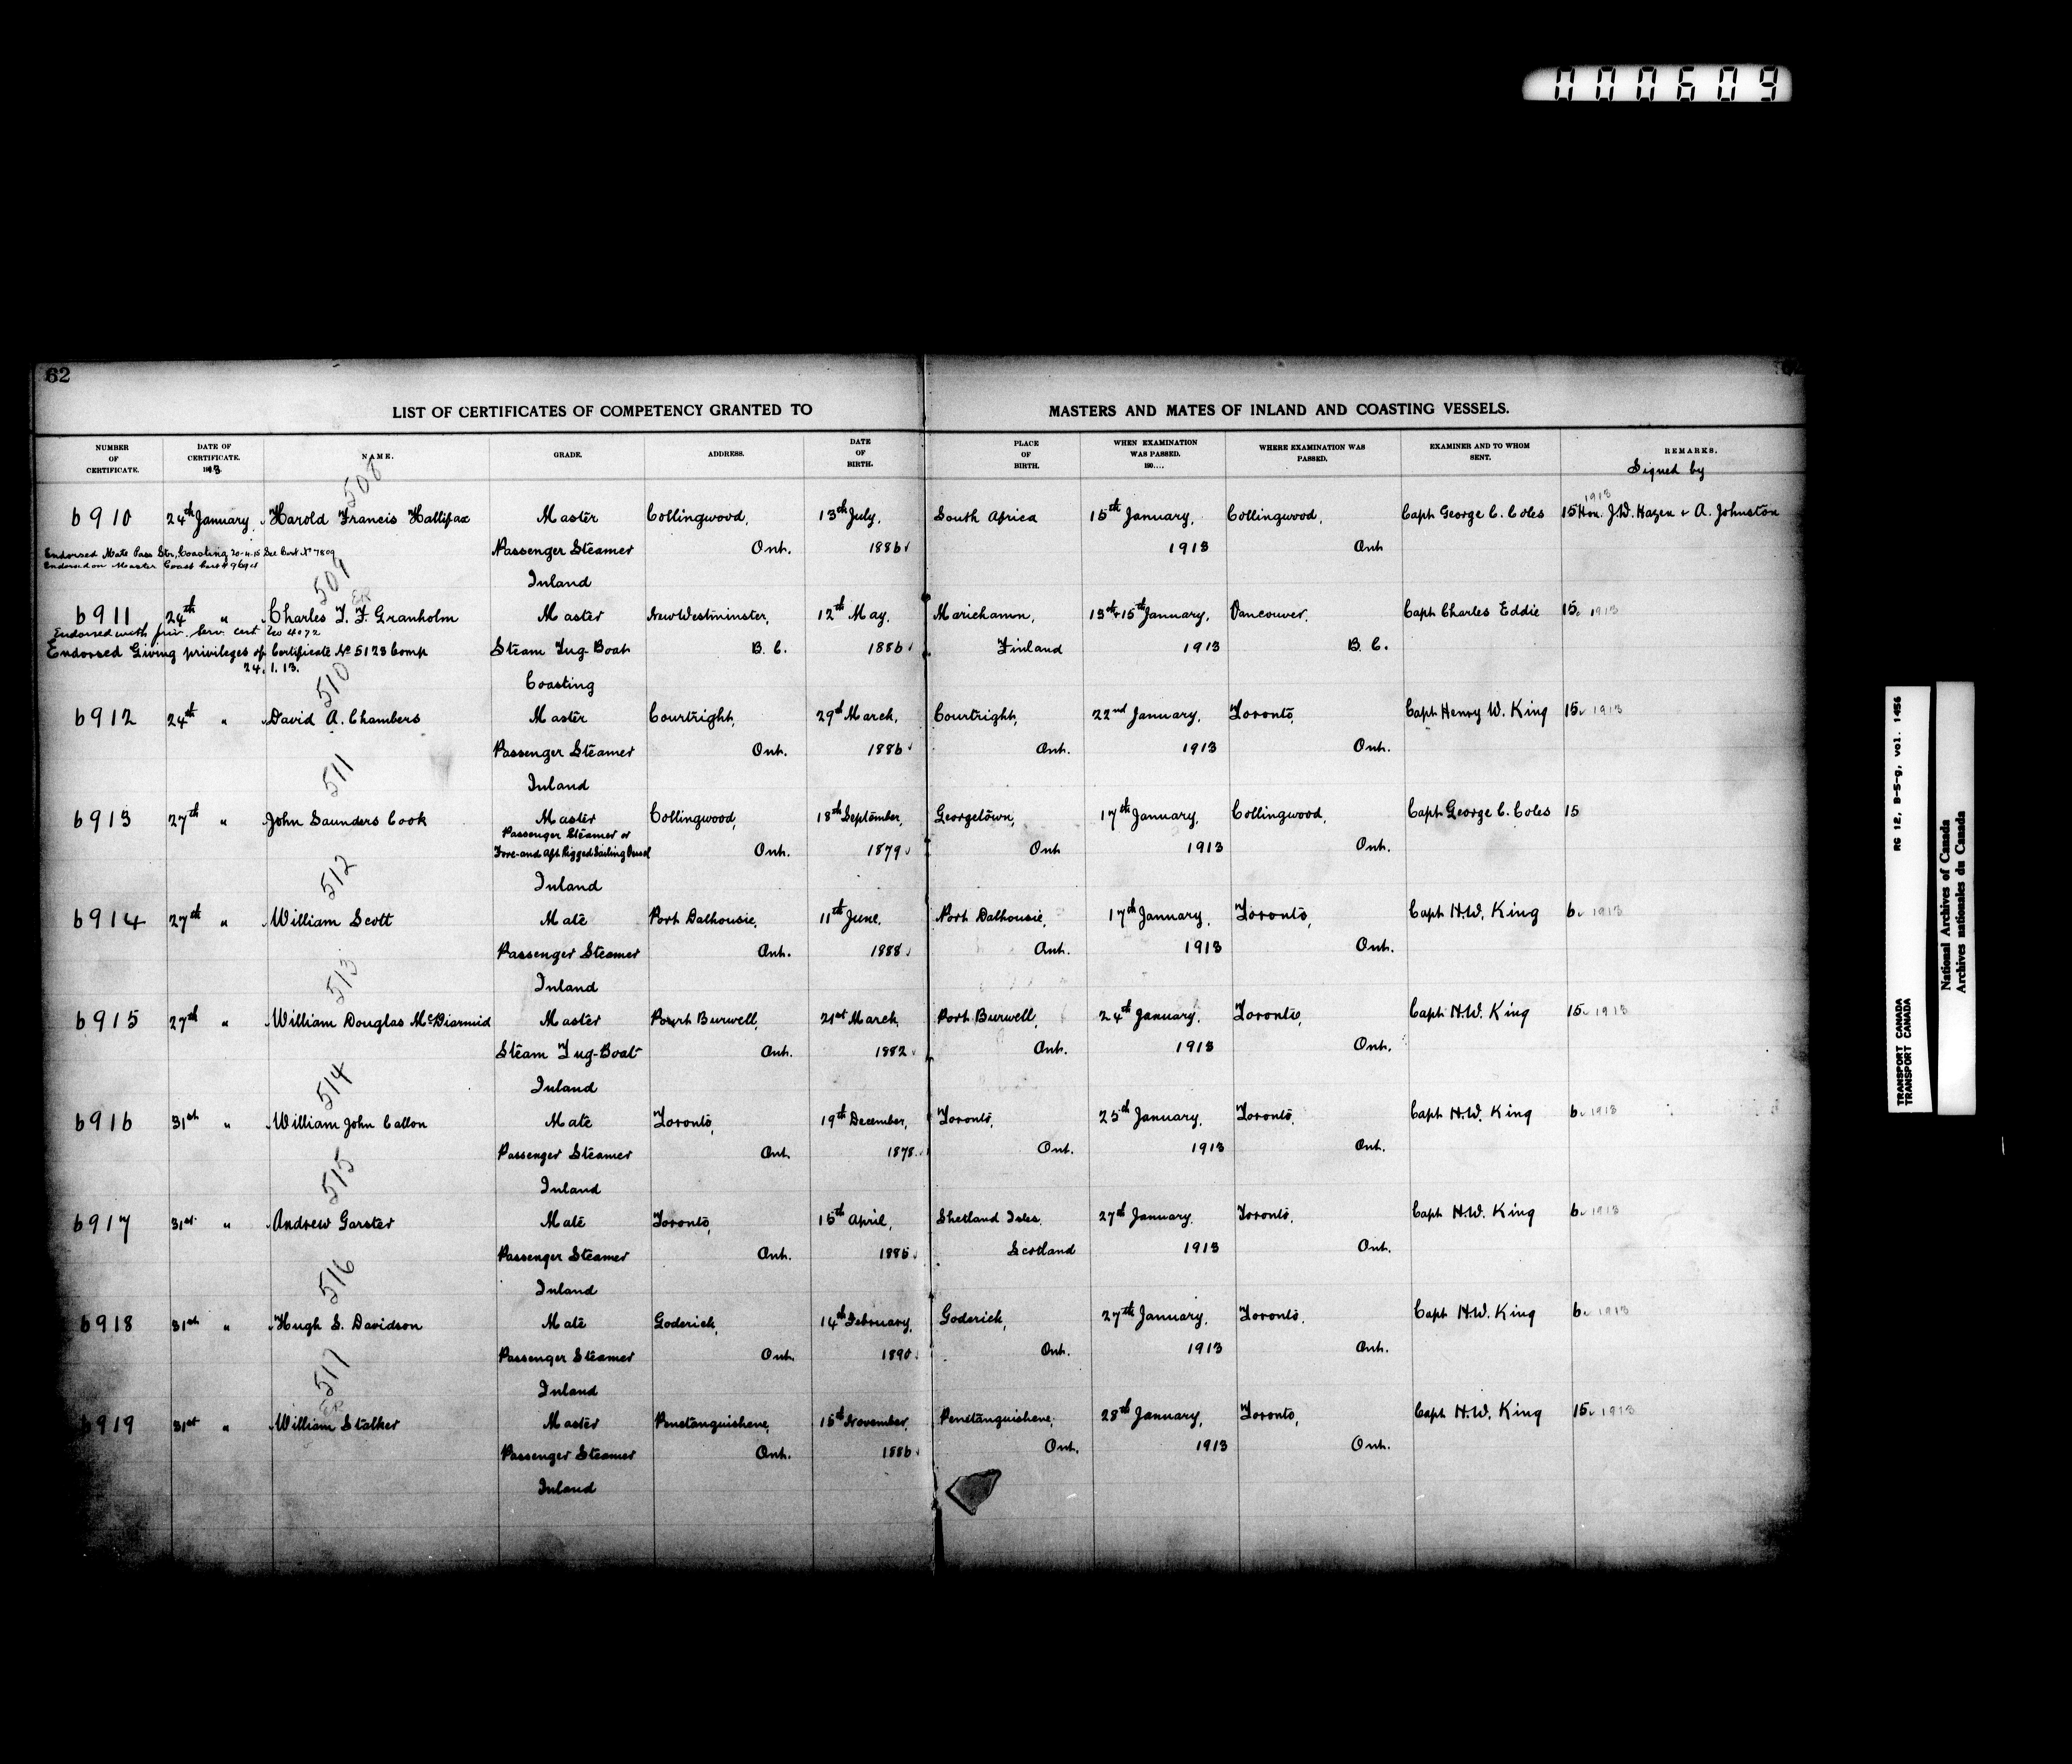 000609
62
LIST OF CERTIFICATES OF COMPETENCY GRANTED TO MASTERS AND MATES OF INLAND AND COASTING VESSELS.
NUMBER OF CERTIFICATE. DATE OF CERTIFICATE. 1913 NAME. GRADE. ADDRESS. DATE OF BIRTH. PLACE OF BIRTH. WHEN EXAMINATION WAS PASSED. 190.... WHERE EXAMINATION WAS PASSED. EXAMINER AND TO WHOM SENT. REMARKS.
Signed by
508
1913
6910 24th January. Harold Francis Hallifax Master Collingwood, 13th July, South Africa 15th January, Collingwood, Capt George C. Coles 15 Hon. J.W. Hazen & A. Johnston
Endorsed Mate Pass Str, Coasting 20-4-15 See Cert No 7809 Passenger Steamer Ont. 1886 1913 Ont
Endorsed on Master Coast Cert # 9694
Inland
509
6911 24th " Charles T. F. Granholm Master New Westminster, 12th May, Mariehamn, 13th & 15th January, Vancouver, Capt Charles Eddie 15. 1913
Endorsed with Serv. Cert No 4072
Endorsed Giving privileges of Certificate No 5123 Comp Steam Tug-Boat B. C. 1886 Finland 1913 B. C.
24. 1. 13.
Coasting
510
6912 24th " David A. Chambers Master Courtright, 29th March, Courtright, 22nd January, Toronto, Capt Henry W. King 15. 1913
Passenger Steamer Ont. 1886 Ont. 1913 Ont.
Inland
511
6913 27th " John Saunders Cook Master Collingwood, 18th September, Georgetown, 17th January, Collingwood, Capt George C. Coles 15
Passenger Steamer or
Fore-and Aft Rigged Sailing Vessel Ont. 1879 Ont 1913 Ont.
Inland
512
6914 27th " William Scott Mate Port Dalhousie, 11th June, Port Dalhousie, 17th January, Toronto, Capt H.W. King 6. 1913
Passenger Steamer Ont. 1888 Ont. 1913 Ont.
Inland
513
6915 27th " William Douglas McDiarmid Master Port Burwell, 21st March, Port Burwell, 24th January, Toronto, Capt H.W. King 15. 1913
Steam Tug-Boat Ont. 1882 Ont. 1913 Ont.
Inland
514
6916 31st " William John Callon Mate Toronto, 19th December, Toronto, 25th January, Toronto, Capt H.W. King 6. 1913
Passenger Steamer Ont. 1878 Ont. 1913 Ont.
Inland
515
6917 31st " Andrew Garster Mate Toronto, 15th April, Shetland Isles, 27th January, Toronto, Capt H.W. King 6. 1913
Passenger Steamer Ont. 1885 Scotland 1913 Ont.
Inland
516
6918 31st " Hugh S. Davidson Mate Goderich, 14th February, Goderich, 27th January, Toronto, Capt H.W. King 6. 1913
Passenger Steamer Ont. 1890 Ont. 1913 Ont.
Inland
517
6919 31st " William Stalker Master Penetanguishene, 15th November, Penetanguishene, 28th January, Toronto, Capt H.W. King 15. 1913
Passenger Steamer Ont. 1886 Ont. 1913 Ont.
Inland
RG 12, B-5-g, vol. 1456
TRANSPORT CANADA
TRANSPORT CANADA
National Archives of Canada
Archives nationales du Canada